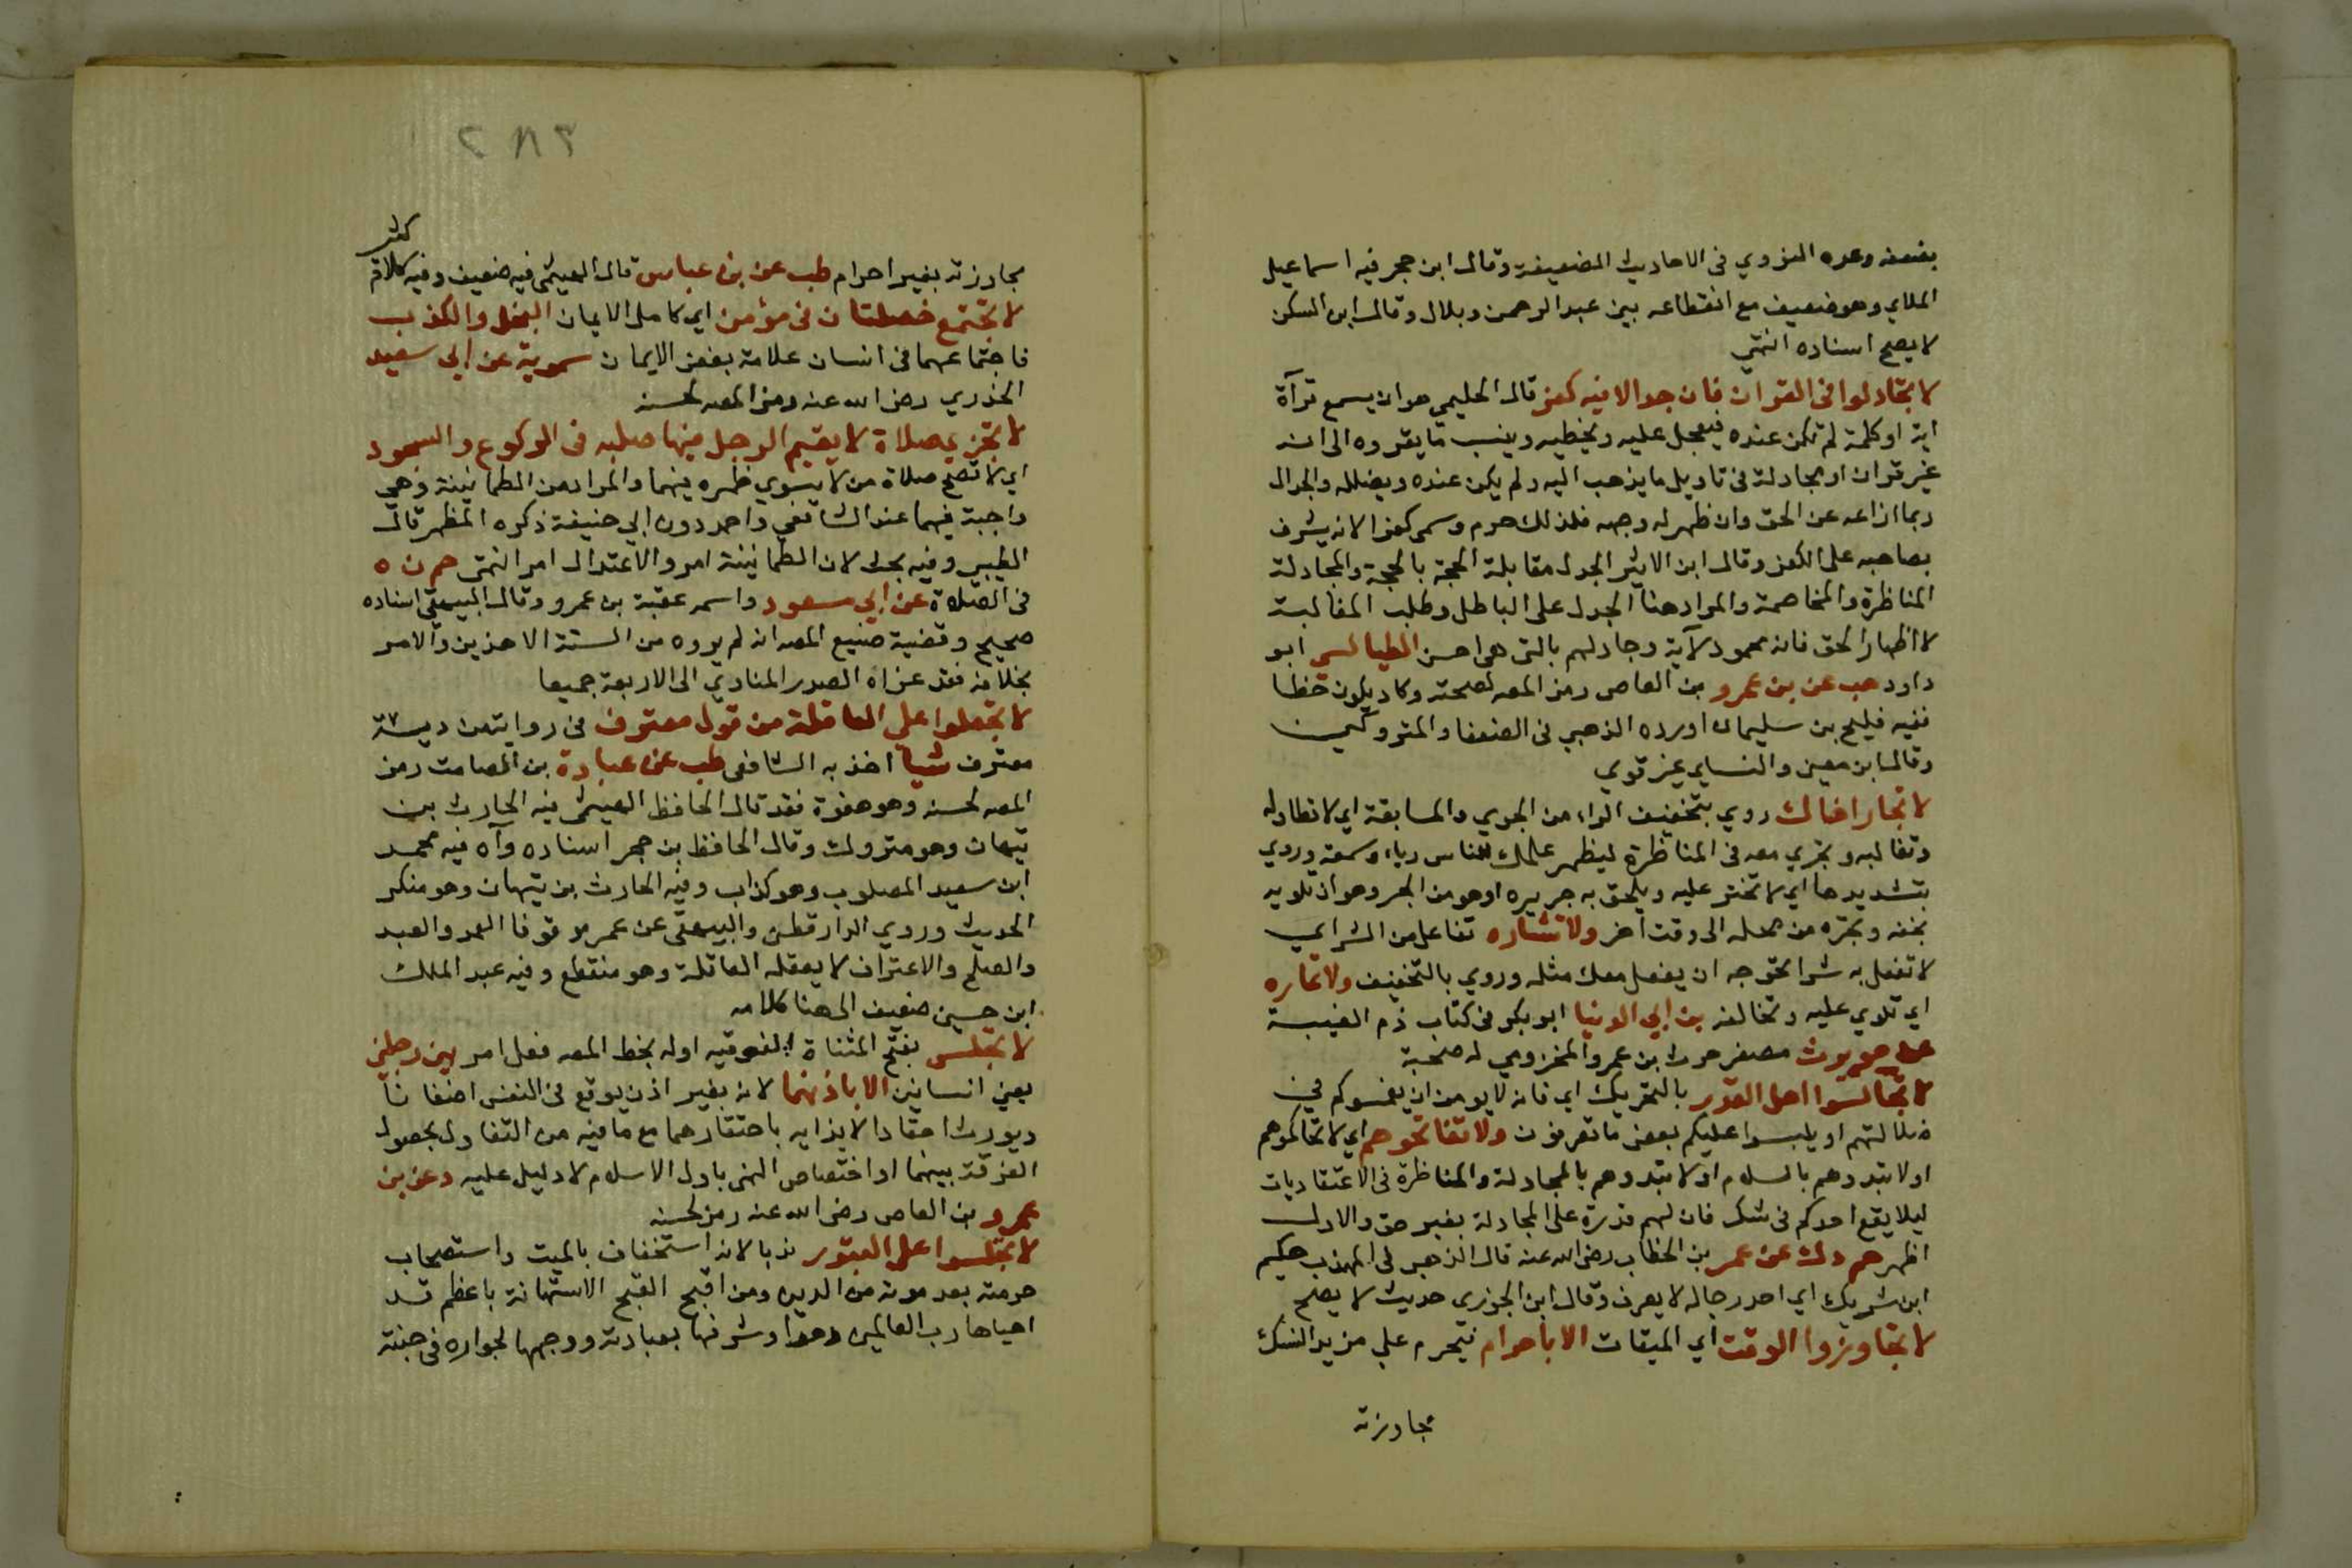 بضعفه وعده النووي في الاحاديث الضعيفة وقال ابن حجر فيه اسماعيل
الملاي وهو ضعيف مع انقطاعه بين عبد الرحمن وبلال وقال ابن السكن
لا يصح اسناده انتهى
لا تجادلوا في القران فان جدالا فيه كفر قال الحليمي هو ان يسمع قرآة
اية او كلمة لم تكن عنده فيعجل عليه ويخطيه وينسب ما يقروه الى انه
غير قران او يجادله في تاويل ما يذهب اليه ولم يكن عنده ويضلله والجدال
ربما ازاغه عن الحق وان ظهر له وجهه فلذلك حرم وسمى كفرا لانه يشرف
بصاحبه على الكفر وقال ابن الاثير الجدل مقابلة الحجة بالحجة والمجادلة
المناظرة والمخاصمة والمراد هنا الجدل على الباطل وطلب المغالبة
لا اظهار الحق فانه محمود لآية وجادلهم بالتي هي احسن الطيالسي ابو
داود هب عن بن عمرو بن العاص رمز المصه لصحته وكاد يكون خطا
ففيه فليح بن سليمان اورده الذهبي في الضعفا والمتروكين
وقال ابن معين والنساي غير قوي
لا تجار اخاك روي بتخفيف الراء من الجري والمسابقة اي لا تطاوله
وتغالبه وتجري معه في المناظرة ليظهر علمك للناس رياء وسمعة وروي
بتشديدها اي لا تجن عليه ويلحق به جريره او هو من الجر وهو ان تلويه
بحقه وتجره من محله الى وقت اخر ولا تشاره تفاعل من الشر اي
لا تفعل به شرا تحوجه ان يفعل معك مثله وروي بالتخفيف ولا تماره
اي تلوي عليه وتخالفه بن ابي الدنيا ابو بكر في كتاب ذم الغيبة
عن حويرث مصغر حرث ابن عمرو المخزومي له صحبة
لا تجالسوا اهل القدر بالتحريك اي فانه لا يومن ان يغمسوكم في
ضلالتهم او يلبسوا عليكم بعض ما تعرفون ولا تفاتحوهم اي لا تحاكموهم
او لا تبدوهم بالسلام او لا تبدوهم بالمجادلة والمناظرة في الاعتقاديات
ليلا يقع احدكم في شك فان لهم قدرة على المجادلة بغير حق والاول
اظهر حم د ك عن عمر بن الخطاب رضي الله عنه قال الذهبي في المهذب حكيم
ابن شريك اي احد رجاله لا يعرف وقال ابن الجوزي حديث لا يصح
لا تجاوزوا الوقت اي الميقات الا باحرام فيحرم على مزيد النسك
مجاوزته
٢٨٣
مجاوزته بغير احرام طب عن بن عباس قال الهيثمي فيه ضعيف وفيه كلام
كثير
لا تجتمع خصلتان في مؤمن اي كامل الايمان البخل والكذب
فاجتماعهما في انسان علامة بغض الايمان سموية عن ابي سعيد
الخدري رضي الله عنه رمز المصه لحسنه
لا تجزي صلاة لا يقيم الرجل فيها صلبه في الركوع والسجود
اي لا تصح صلاة من لا يسوي ظهره فيهما والمراد من الطمانينة وهي
واجبة فيهما عند الشافعي واحمد دون ابي حنيفة ذكره المظهر قال
الطيبي وفيه بحث لان الطمانينة امر والاعتدال امر انتهى حم ن ه
في الصلاة عن ابي مسعود واسمه عقبة بن عمرو وقال البيهقي اسناده
صحيح وقضية صنيع المصه انه لم يروه من الستة الا هذين والامر
بخلافه فقد عزاه الصدر المناوي الى الاربعة جميعا
لا تجعلوا على العاقلة من قول معترف في رواية من دية
معترف شيا اخذ به الشافعي طب عن عبادة بن الصامت رمز
المصه لحسنه وهو هفوة فقد قال الحافظ الهيثمي فيه الحارث بن
تيهان وهو متروك وقال الحافظ بن حجر اسناده وآه فيه محمد
ابن سعيد المصلوب وهو كذاب وفيه الحارث بن تيهان وهو منكر
الحديث وروي الدارقطني والبيهقي عن عمر موقوفا العمد والعبد
والصلح والاعتراف لا يعقله العاقلة وهو منقطع وفيه عبد الملك
ابن حسين ضعيف الى هنا كلامه
لا تجلس بفتح المثناة الفوقيه اوله بخط المصه فعل امر بين رجلين
يعني انسانين الا باذنهما لانه بغير اذن يوقع في النفس اضغانا
ويورث احقادا لايذايه باحتقارهما مع ما فيه من التفاول بحصول
الفرقة بينهما او اختصاص النهي باول الاسلام لا دليل عليه د عن بن
عمرو بن العاص رضي الله عنه رمز لحسنه
لا تجلسوا على القبور ندبا لانه استخفاف بالميت واستصحاب
حرمته بعد موته من الدين ومن اقبح القبح الاستهانة باعظم قد
احياها رب العالمين دهرا وشرفها بعبادته ووجهها لجواره في جنته